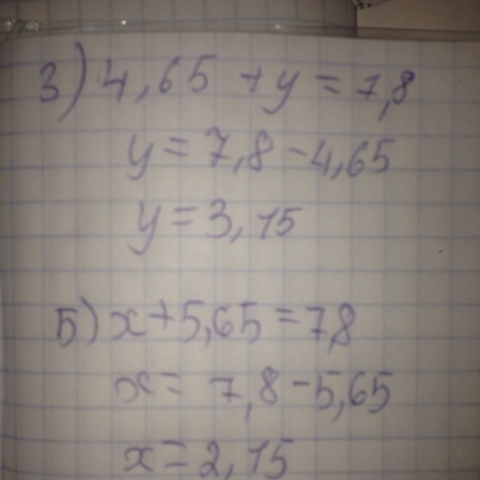 3) 4,65 + y = 7,8
y = 7,8 - 4,65
y = 3,15
5) x + 5,65 = 7,8
x = 7,8 - 5,65
x = 2,15